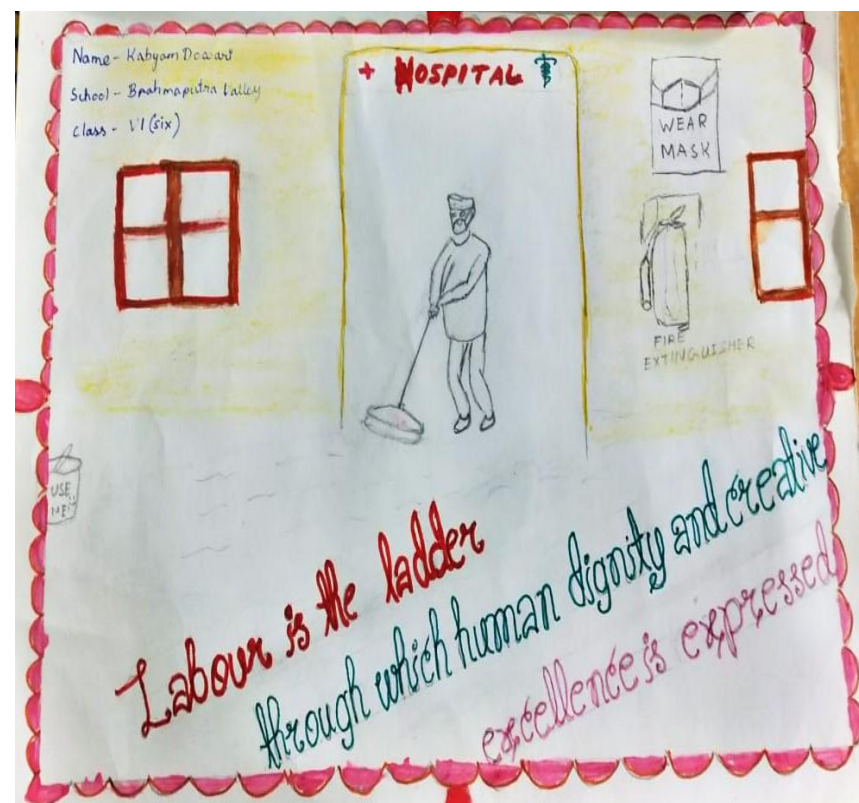 Name - Kabyam Dowari
School - Brahmaputra Valley
Class - VI (six)
+ HOSPITAL
WEAR
MASK
FIRE
EXTINGUISHER
USE
ME
Labour is the ladder
through which human dignity and creative
excellence is expressed